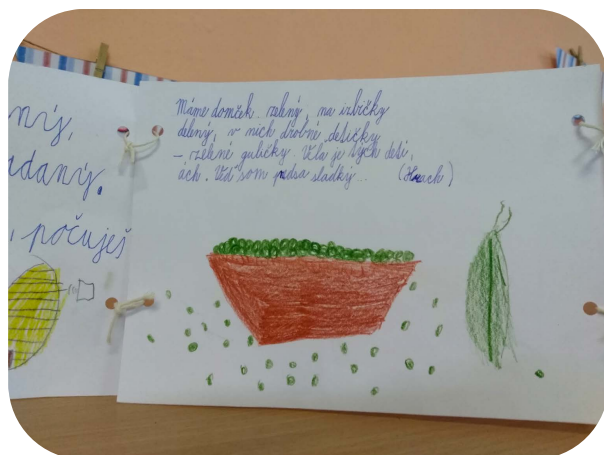 ný,
adaný.
, počuješ
Máme domček zelený, na izbičky
delený, v nich drobné detičky
– zelené guličky. Veľa je tých detí,
ách. Veď som predsa sladký... (Hrach)